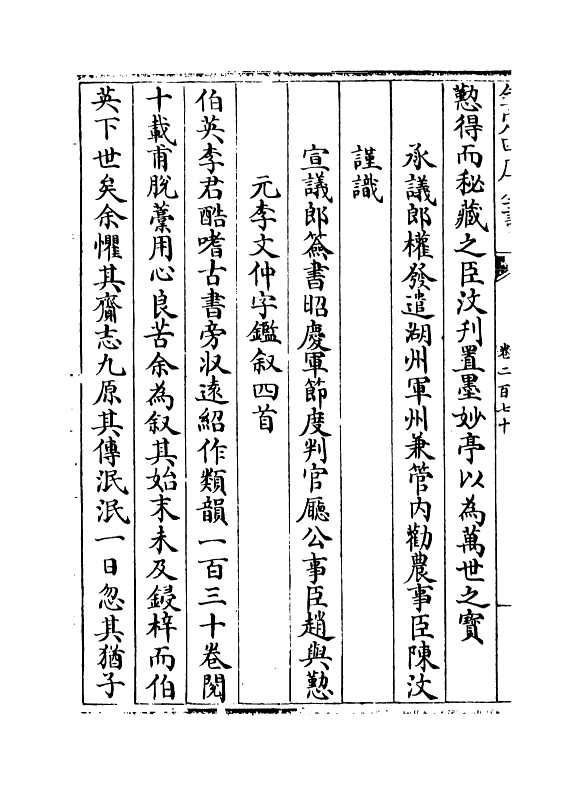 卷二百七十
懃得而秘藏之臣汶刋置墨妙亭以為萬世之寶
承議郎權發遣湖州軍州兼管内勸農事臣陳汶
謹識
宣議郎簽書昭慶軍節度判官廳公事臣趙與懃
元李文仲字鑑叙四首
伯英李君酷嗜古書旁収逺紹作類韻一百三十卷閲
十載甫脫藁用心良苦余為叙其始末未及鋟梓而伯
英下世矣余懼其齎志九原其傳泯泯一日忽其猶子